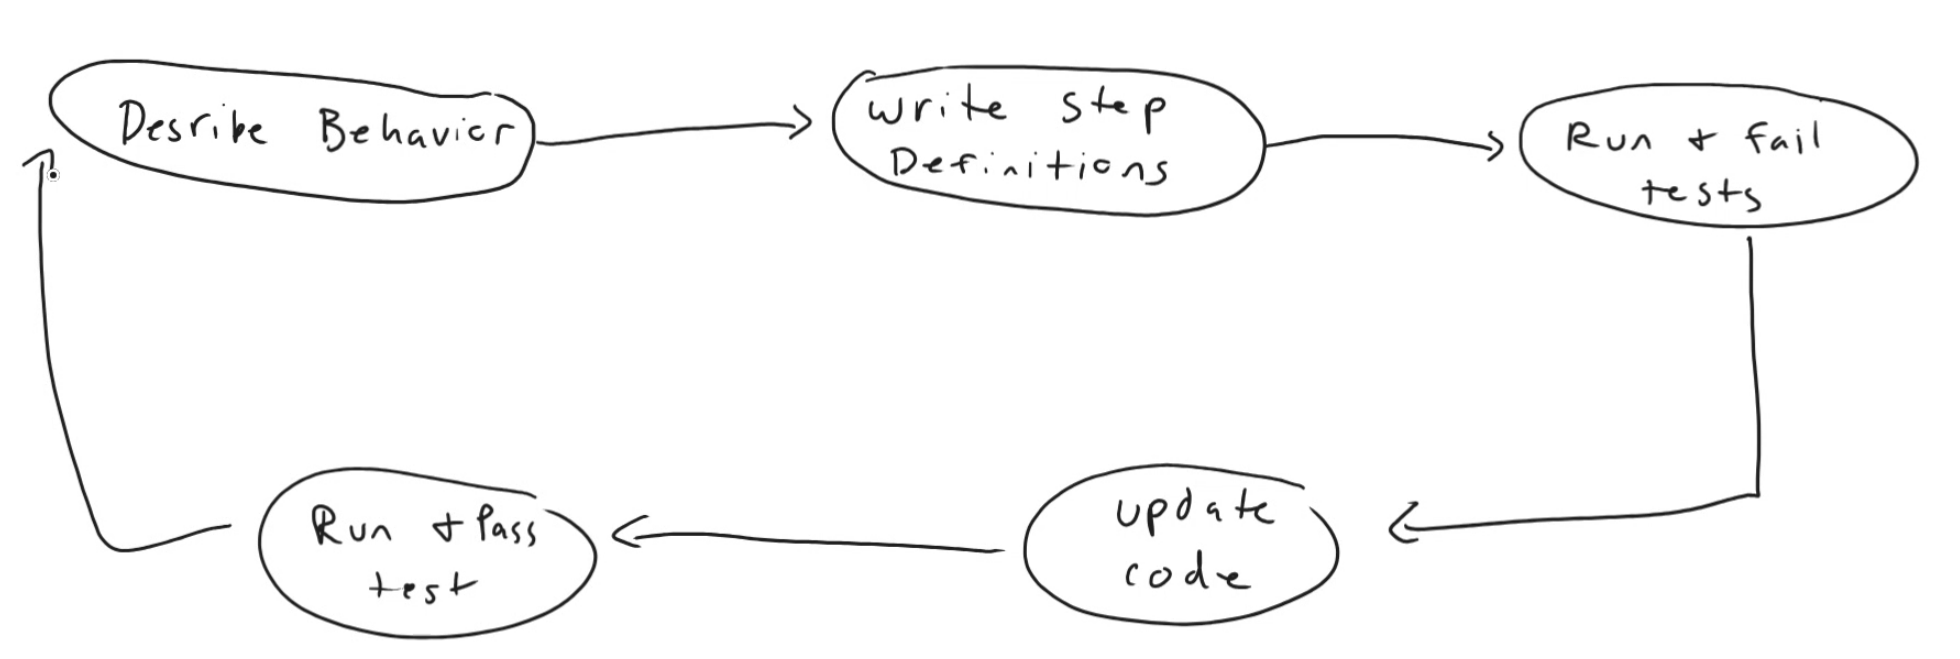 Desribe Behavior
Write Step
Definitions
Run + fail
tests
update
code
Run + Pass
test